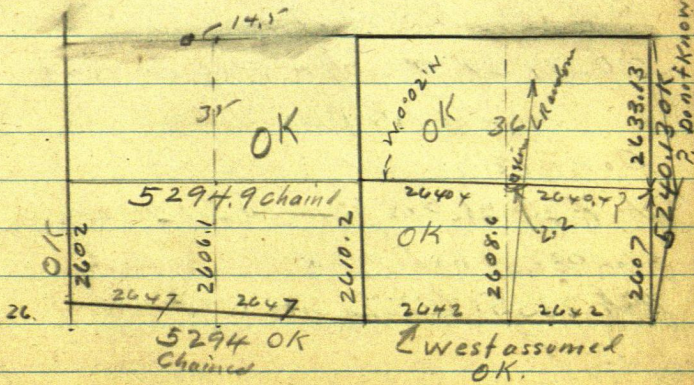 14.5
35
OK
W. 0°02' N
OK
36
Random
2633.13
5240.13 OK
? Don't Know
5294.9 Chaind
2640.4
2640.4?
2.2
OK
2602
2606.1
2610.2
OK
2608.6
2607
26.
2647
2647
2642
2642
5294 OK
Chained
West assumed
OK.